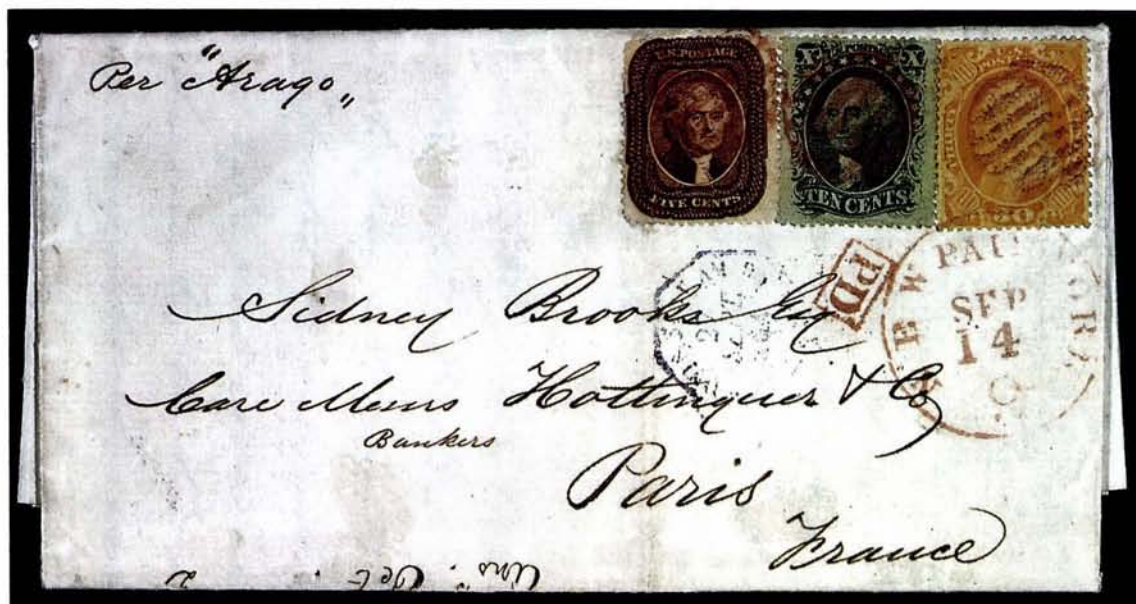 Per "Arago"
U.S. POSTAGE
FIVE CENTS
X X
TEN CENTS
30
PD
NEW PAID YORK
SEP
14
Sidney Brooks Esq
Care Messrs Hottinguer & Co
Bankers
Paris
France
Ans. Oct. 2